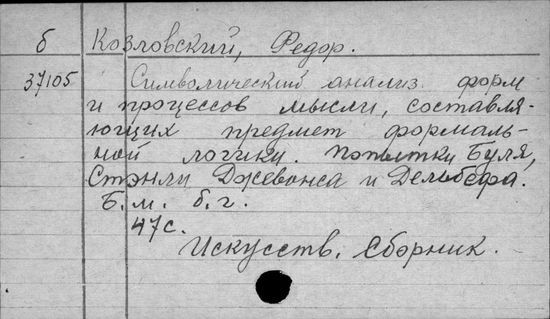 б Козловский, Федор.
37105 Символический анализ форм
и процессов мысли, составля-
ющих предмет формаль-
ной логики. Попытки Буля,
Стэнли Джевонса и Дельбефа.
Б.м. б.г.
47с.
Искусств. Сборник.